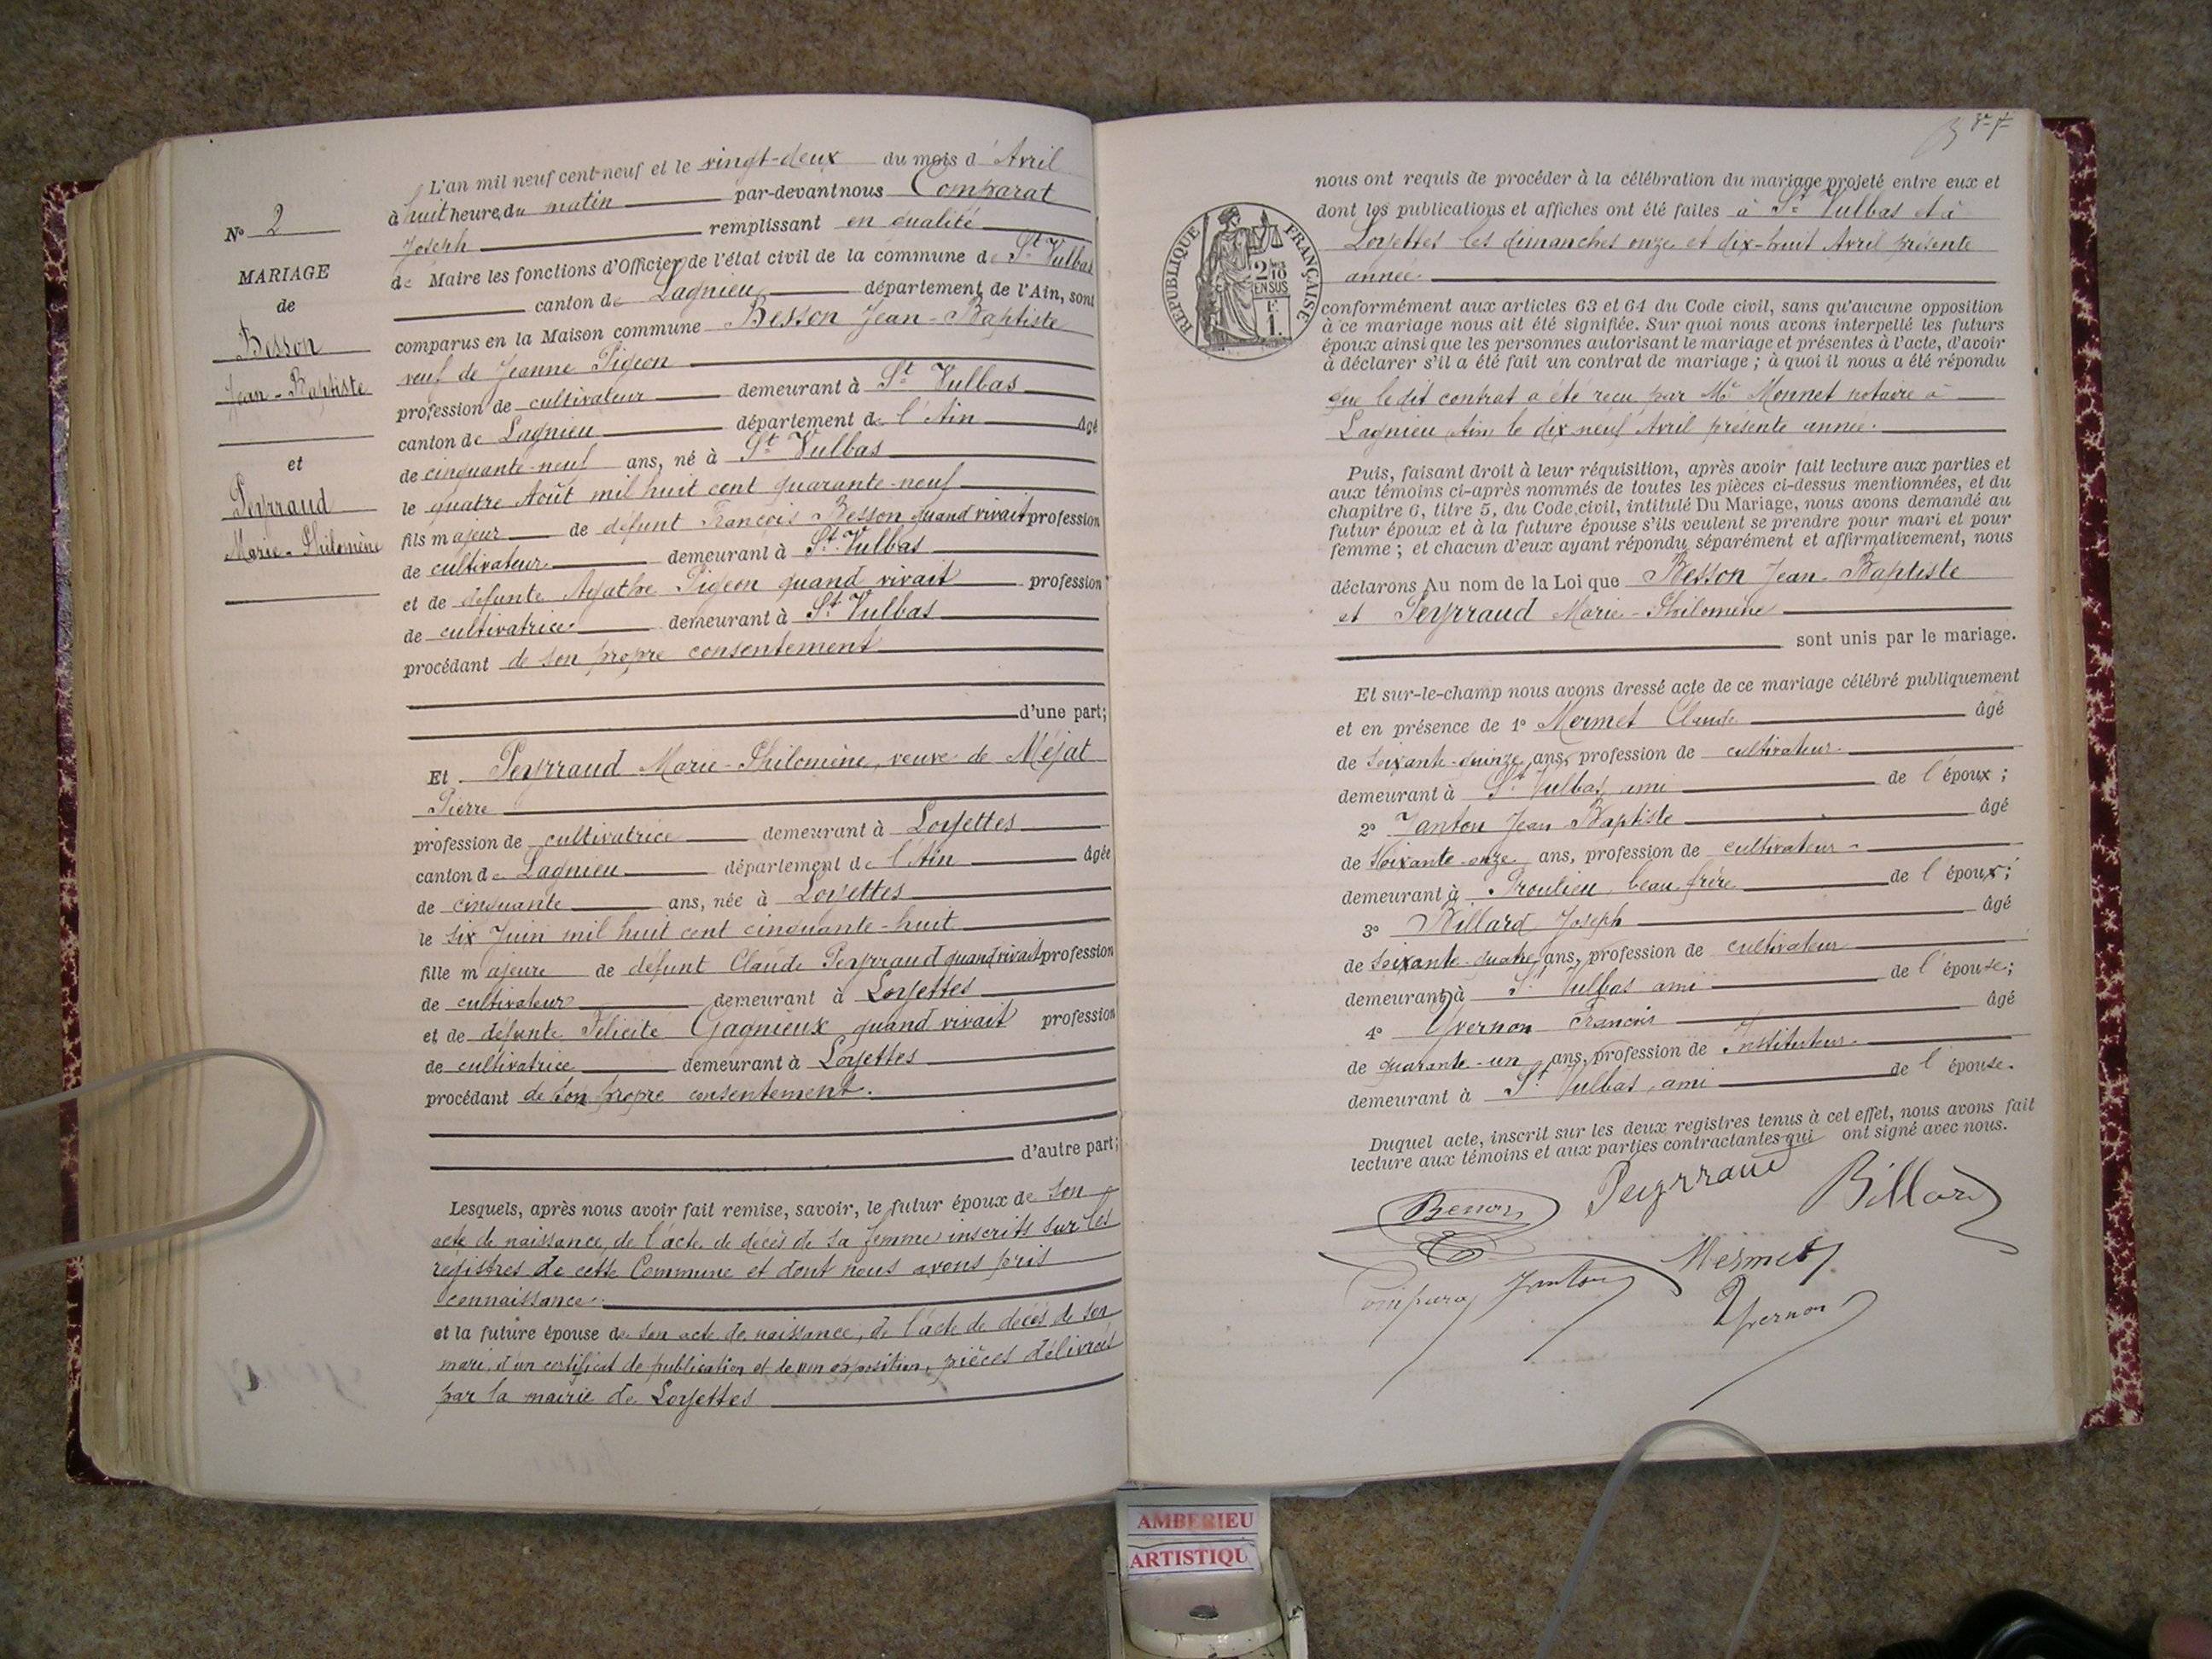 N° 2
MARIAGE
de
Besson
Jean-Baptiste
et
Peyrraud
Marie-Philomène
L'an mil neuf cent-neuf et le vingt-deux du mois d'Avril
à huit heure, du matin par-devant nous Comparat
Joseph remplissant en qualité
de Maire les fonctions d'Officier de l'état civil de la commune de St Vulbas
canton de Lagnieu département de l'Ain, sont
comparus en la Maison commune Besson Jean-Baptiste
veuf de Jeanne Pigeon
profession de cultivateur demeurant à St Vulbas
canton de Lagnieu département de l'Ain âgé
de cinquante-neuf ans, né à St Vulbas
le quatre Août mil huit cent quarante-neuf
fils majeur de défunt François Besson quand vivait profession
de cultivateur demeurant à St Vulbas
et de défunte Agathe Pigeon quand vivait profession
de cultivatrice demeurant à St Vulbas
procédant de son propre consentement
d'une part;
Et Peyrraud Marie-Philomène, veuve de Méjat
Pierre
profession de cultivatrice demeurant à Loyettes
canton de Lagnieu département de l'Ain âgée
de cinquante ans, née à Loyettes
le six Juin mil huit cent cinquante-huit
fille majeure de défunt Claude Peyrraud quand vivait profession
de cultivateur demeurant à Loyettes
et de défunte Félicité Gagnieux quand vivait profession
de cultivatrice demeurant à Loyettes
procédant de son propre consentement.
d'autre part;
Lesquels, après nous avoir fait remise, savoir, le futur époux de son
acte de naissance, de l'acte de décès de sa femme inscrits sur les
régistres de cette Commune et dont nous avons pris
connaissance.
et la future épouse de son acte de naissance, de l'acte de décès de son
mari, d'un certificat de publication et de non opposition, pièces délivrées
par la mairie de Loyettes
RÉPUBLIQUE FRANÇAISE
2/10
EN SUS
F.
1.
nous ont requis de procéder à la célébration du mariage projeté entre eux et
dont les publications et affiches ont été faites à St Vulbas et à
Loyettes les dimanches onze et dix-huit Avril présente
année.
conformément aux articles 63 et 64 du Code civil, sans qu'aucune opposition
à ce mariage nous ait été signifiée. Sur quoi nous avons interpellé les futurs
époux ainsi que les personnes autorisant le mariage et présentes à l'acte, d'avoir
à déclarer s'il a été fait un contrat de mariage ; à quoi il nous a été répondu
que le dit contrat a été reçu par Me Monnet notaire à
Lagnieu (Ain) le dix neuf Avril présente année.
Puis, faisant droit à leur réquisition, après avoir fait lecture aux parties et
aux témoins ci-après nommés de toutes les pièces ci-dessus mentionnées, et du
chapitre 6, titre 5, du Code civil, intitulé Du Mariage, nous avons demandé au
futur époux et à la future épouse s'ils veulent se prendre pour mari et pour
femme ; et chacun d'eux ayant répondu séparément et affirmativement, nous
déclarons Au nom de la Loi que Besson Jean-Baptiste
et Peyrraud Marie-Philomène
sont unis par le mariage.
Et sur-le-champ nous avons dressé acte de ce mariage célébré publiquement
et en présence de 1° Mermet Claude âgé
de soixante-quinze ans, profession de cultivateur
demeurant à St Vulbas, ami de l'époux ;
2° Janton Jean Baptiste âgé
de soixante-onze ans, profession de cultivateur
demeurant à Proulieu, beau frère de l'époux ;
3° Billard Joseph âgé
de soixante-quatre ans, profession de cultivateur
demeurant à St Vulbas ami de l'épouse ;
4° Yvernon François âgé
de quarante-un ans, profession de Instituteur
demeurant à St Vulbas, ami de l'épouse.
Duquel acte, inscrit sur les deux registres tenus à cet effet, nous avons fait
lecture aux témoins et aux parties contractantes qui ont signé avec nous.
Besson Peyrraud Billard
Comparat Janton Mermet
Yvernon
AMBERIEU
ARTISTIQU